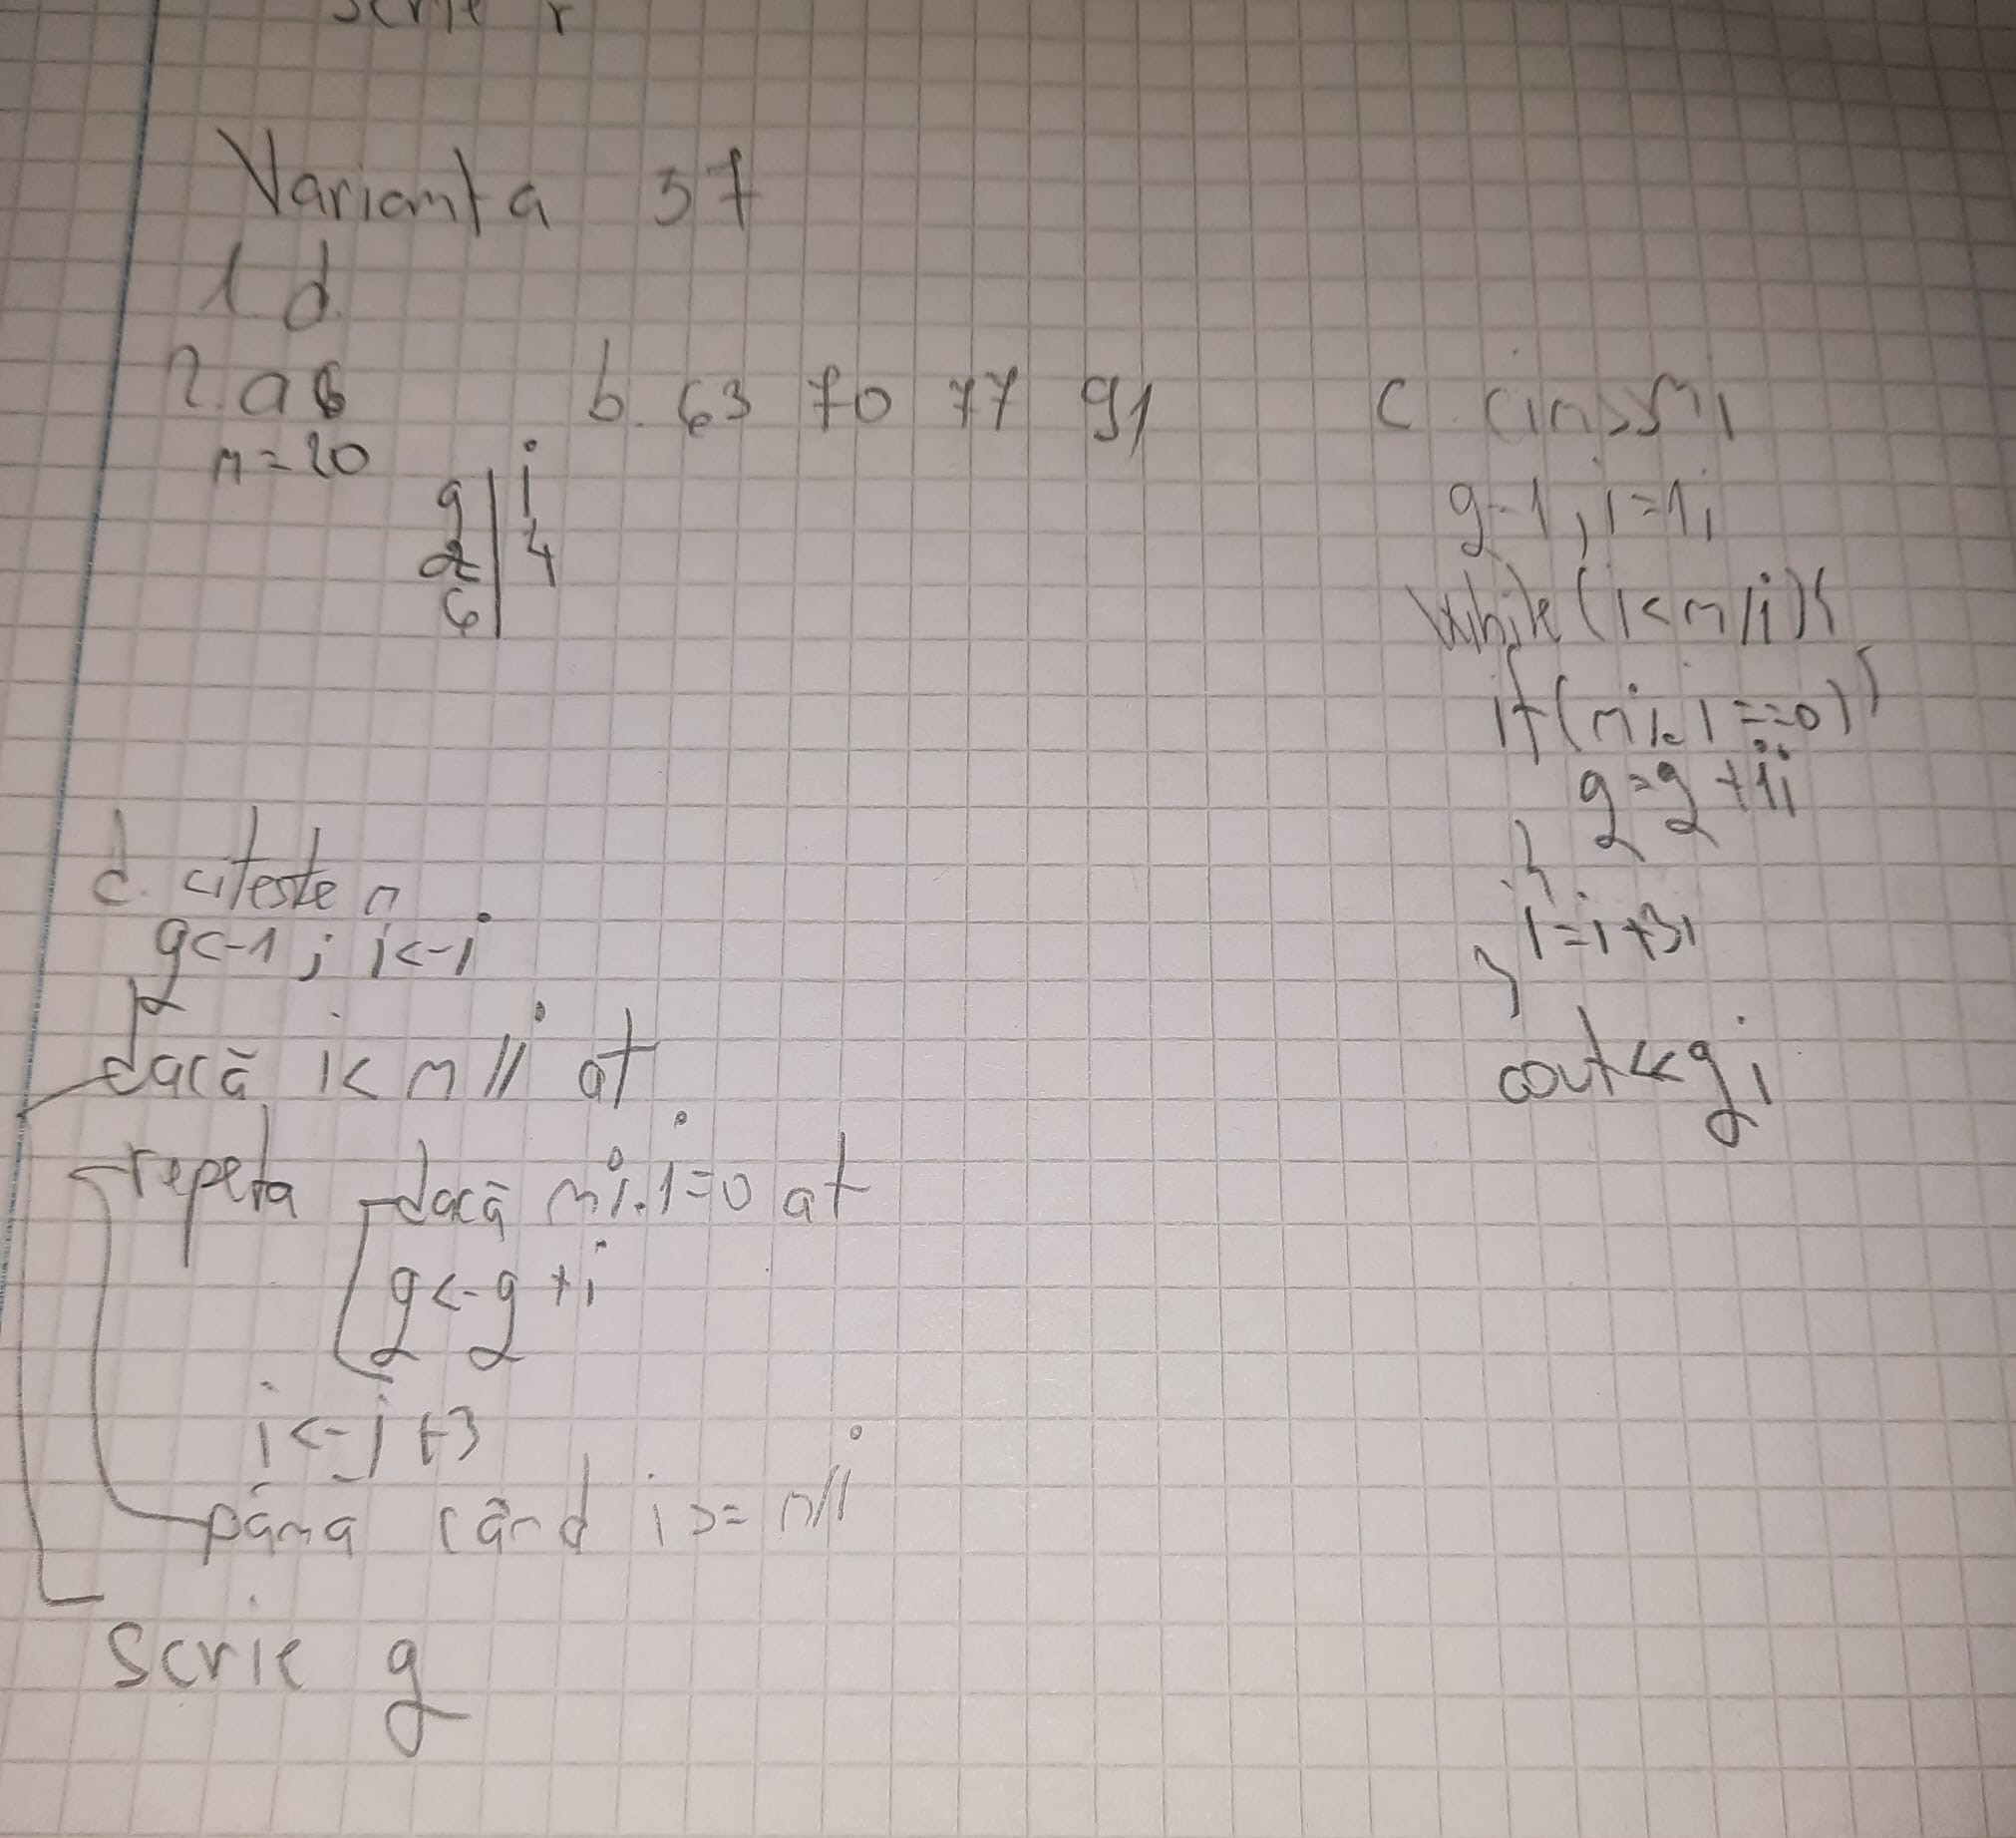 scrie r
Varianta 37
1 d.
2. a 6
n=20
g | i
2 | 4
6 |
b. 63 70 77 91
c. cin>>n;
g=1; i=1;
while(i<n/i){
if(n%i==0){
g=g+i;
}
i=i+3;
}
cout<<g;
d. citeste n
g<-1; i<-1
dacă i<n//i at
repeta dacă n%i=0 at
g<-g+i
i<-i+3
pănă cănd i>=n//i
scrie g